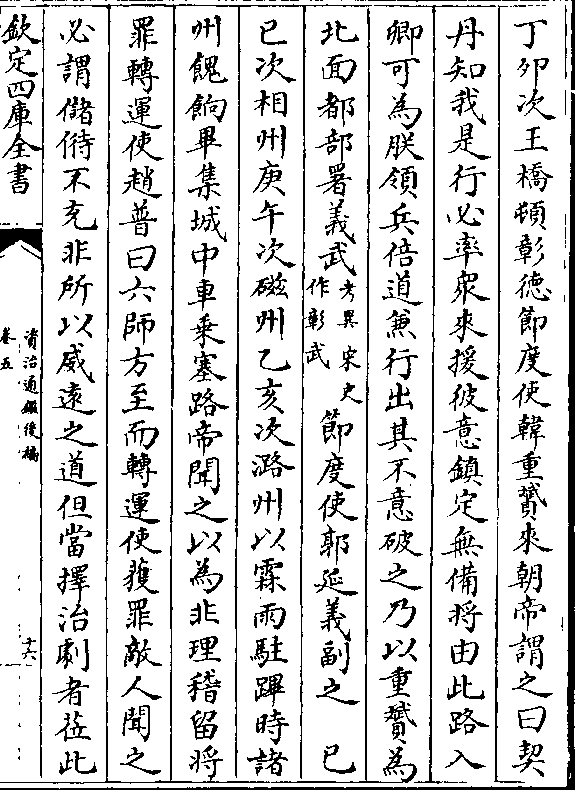 丁卯次王橋頓彰徳節度使韓重贇來朝帝謂之曰契
丹知我是行必率衆來援彼意鎮定無備将由此路入
卿可為朕領兵倍道兼行出其不意破之乃以重贇為
北面都部署義武考異宋史作彰武節度使郭延義副之　己
巳次相州庚午次磁州乙亥次潞州以霖雨駐蹕時諸
州餽餉畢集城中車乗塞路帝聞之以為非理稽留将
罪轉運使趙普曰六師方至而轉運使獲罪敵人聞之
必謂儲偫不充非所以威遠之道但當擇治劇者莅此
欽定四庫全書
資治通鑑後編
卷五
十六